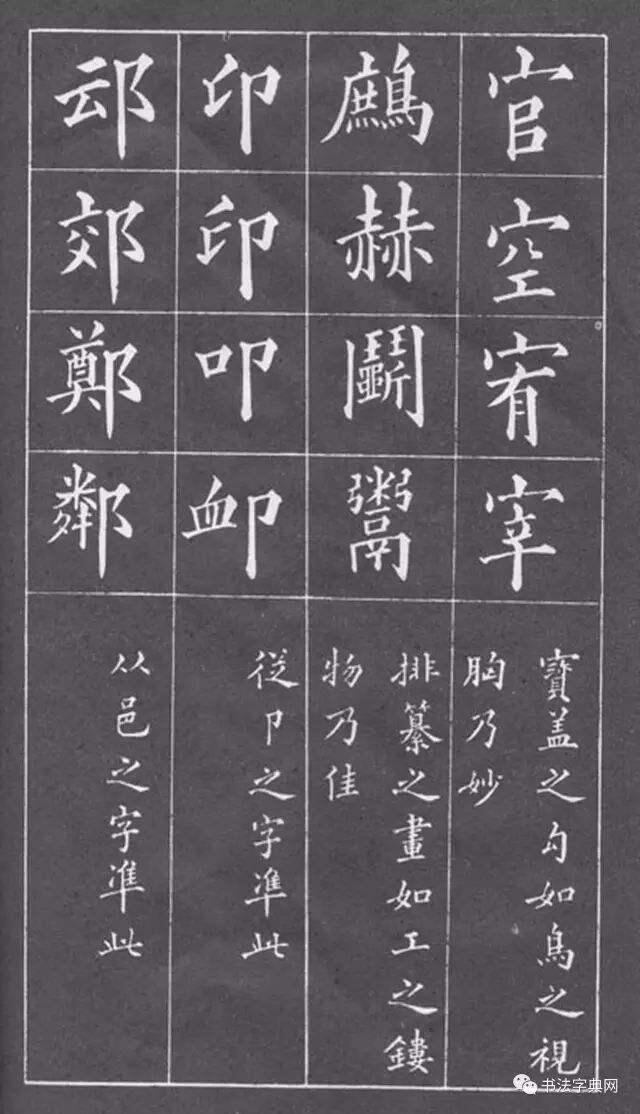 官空宥宰
寶盖之勾如鳥之視
胸乃妙
鷓赫鬬鬻
排纂之畫如工之鏤
物乃佳
印印叩卹
從卩之字凖此
䢵郊鄭鄰
从邑之字凖此
书法字典网